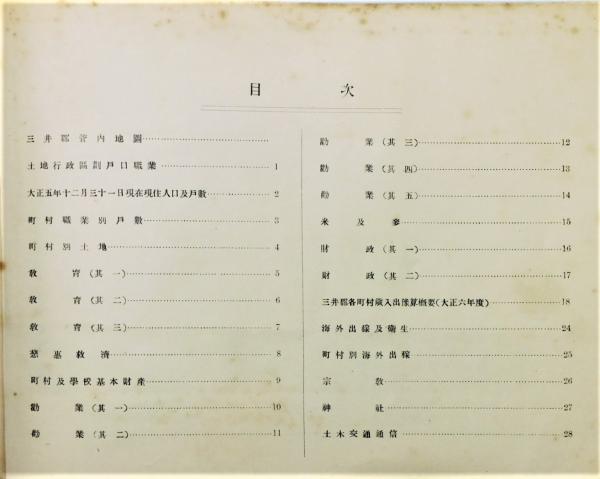 目次
三井郡管内地圖
土地行政區劃戸口職業 1
大正五年十二月三十一日現在現住人口及戸數 2
町村職業別戸數 3
町村別土地 4
敎育(其一) 5
敎育(其二) 6
敎育(其三) 7
慈惠救濟 8
町村及學校基本財產 9
勸業(其一) 10
勸業(其二) 11
勸業(其三) 12
勸業(其四) 13
勸業(其五) 14
米及麥 15
財政(其一) 16
財政(其二) 17
三井郡各町村歲入出豫算槪要(大正六年度) 18
海外出稼及衞生 24
町村別海外出稼 25
宗敎 26
神社 27
土木交通通信 28